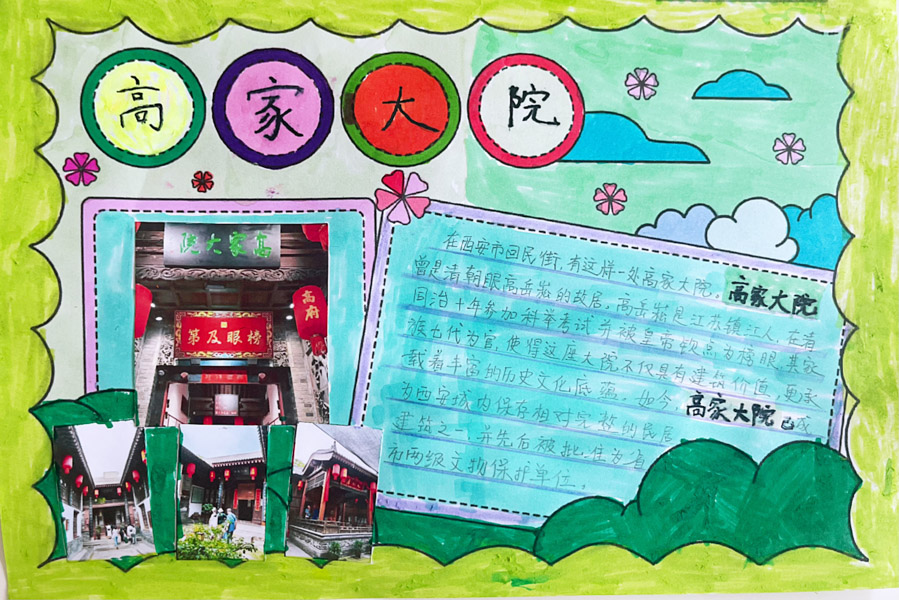 高家大院
高家大院
高府
榜眼及第
在西安市回民街,有这样一处高家大院,高家大院
曾是清朝眼高岳崧的故居,高岳崧是江苏镇江人,在清
同治十年参加科举考试并被皇帝钦点为榜眼,其家
族七代为官,使得这座大院不仅具有建筑价值,更承
载着丰富的历史文化底蕴。如今高家大院已成
为西安城内保存相对完整的民居
建筑之一,并先后被批准为省
市两级文物保护单位。